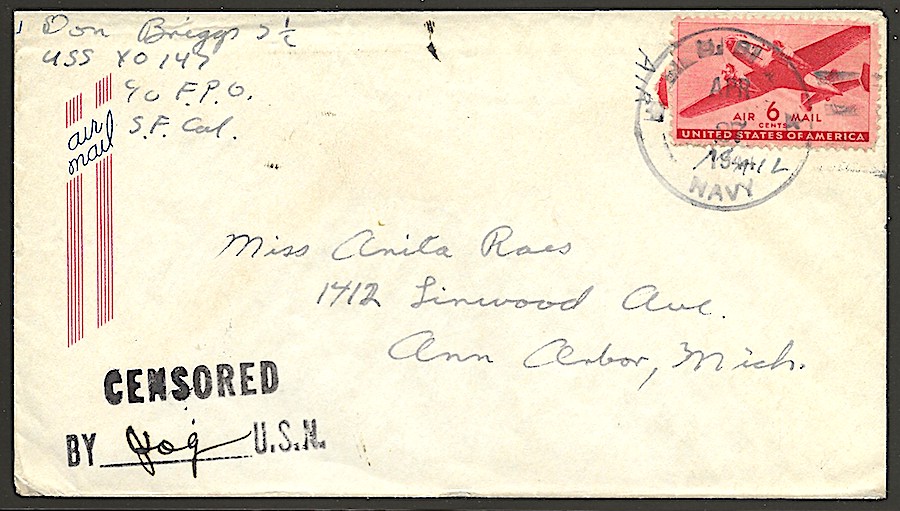 Don Briggs
USS YO 147
c/o F.P.O.
S.F. Cal.
air
mail
AIR
APR
194
NAVY
AIR 6 MAIL
CENTS
UNITED STATES OF AMERICA
Miss Anita Raes
1412 Linwood Ave.
Ann Arbor, Mich.
CENSORED
BY U.S.N.